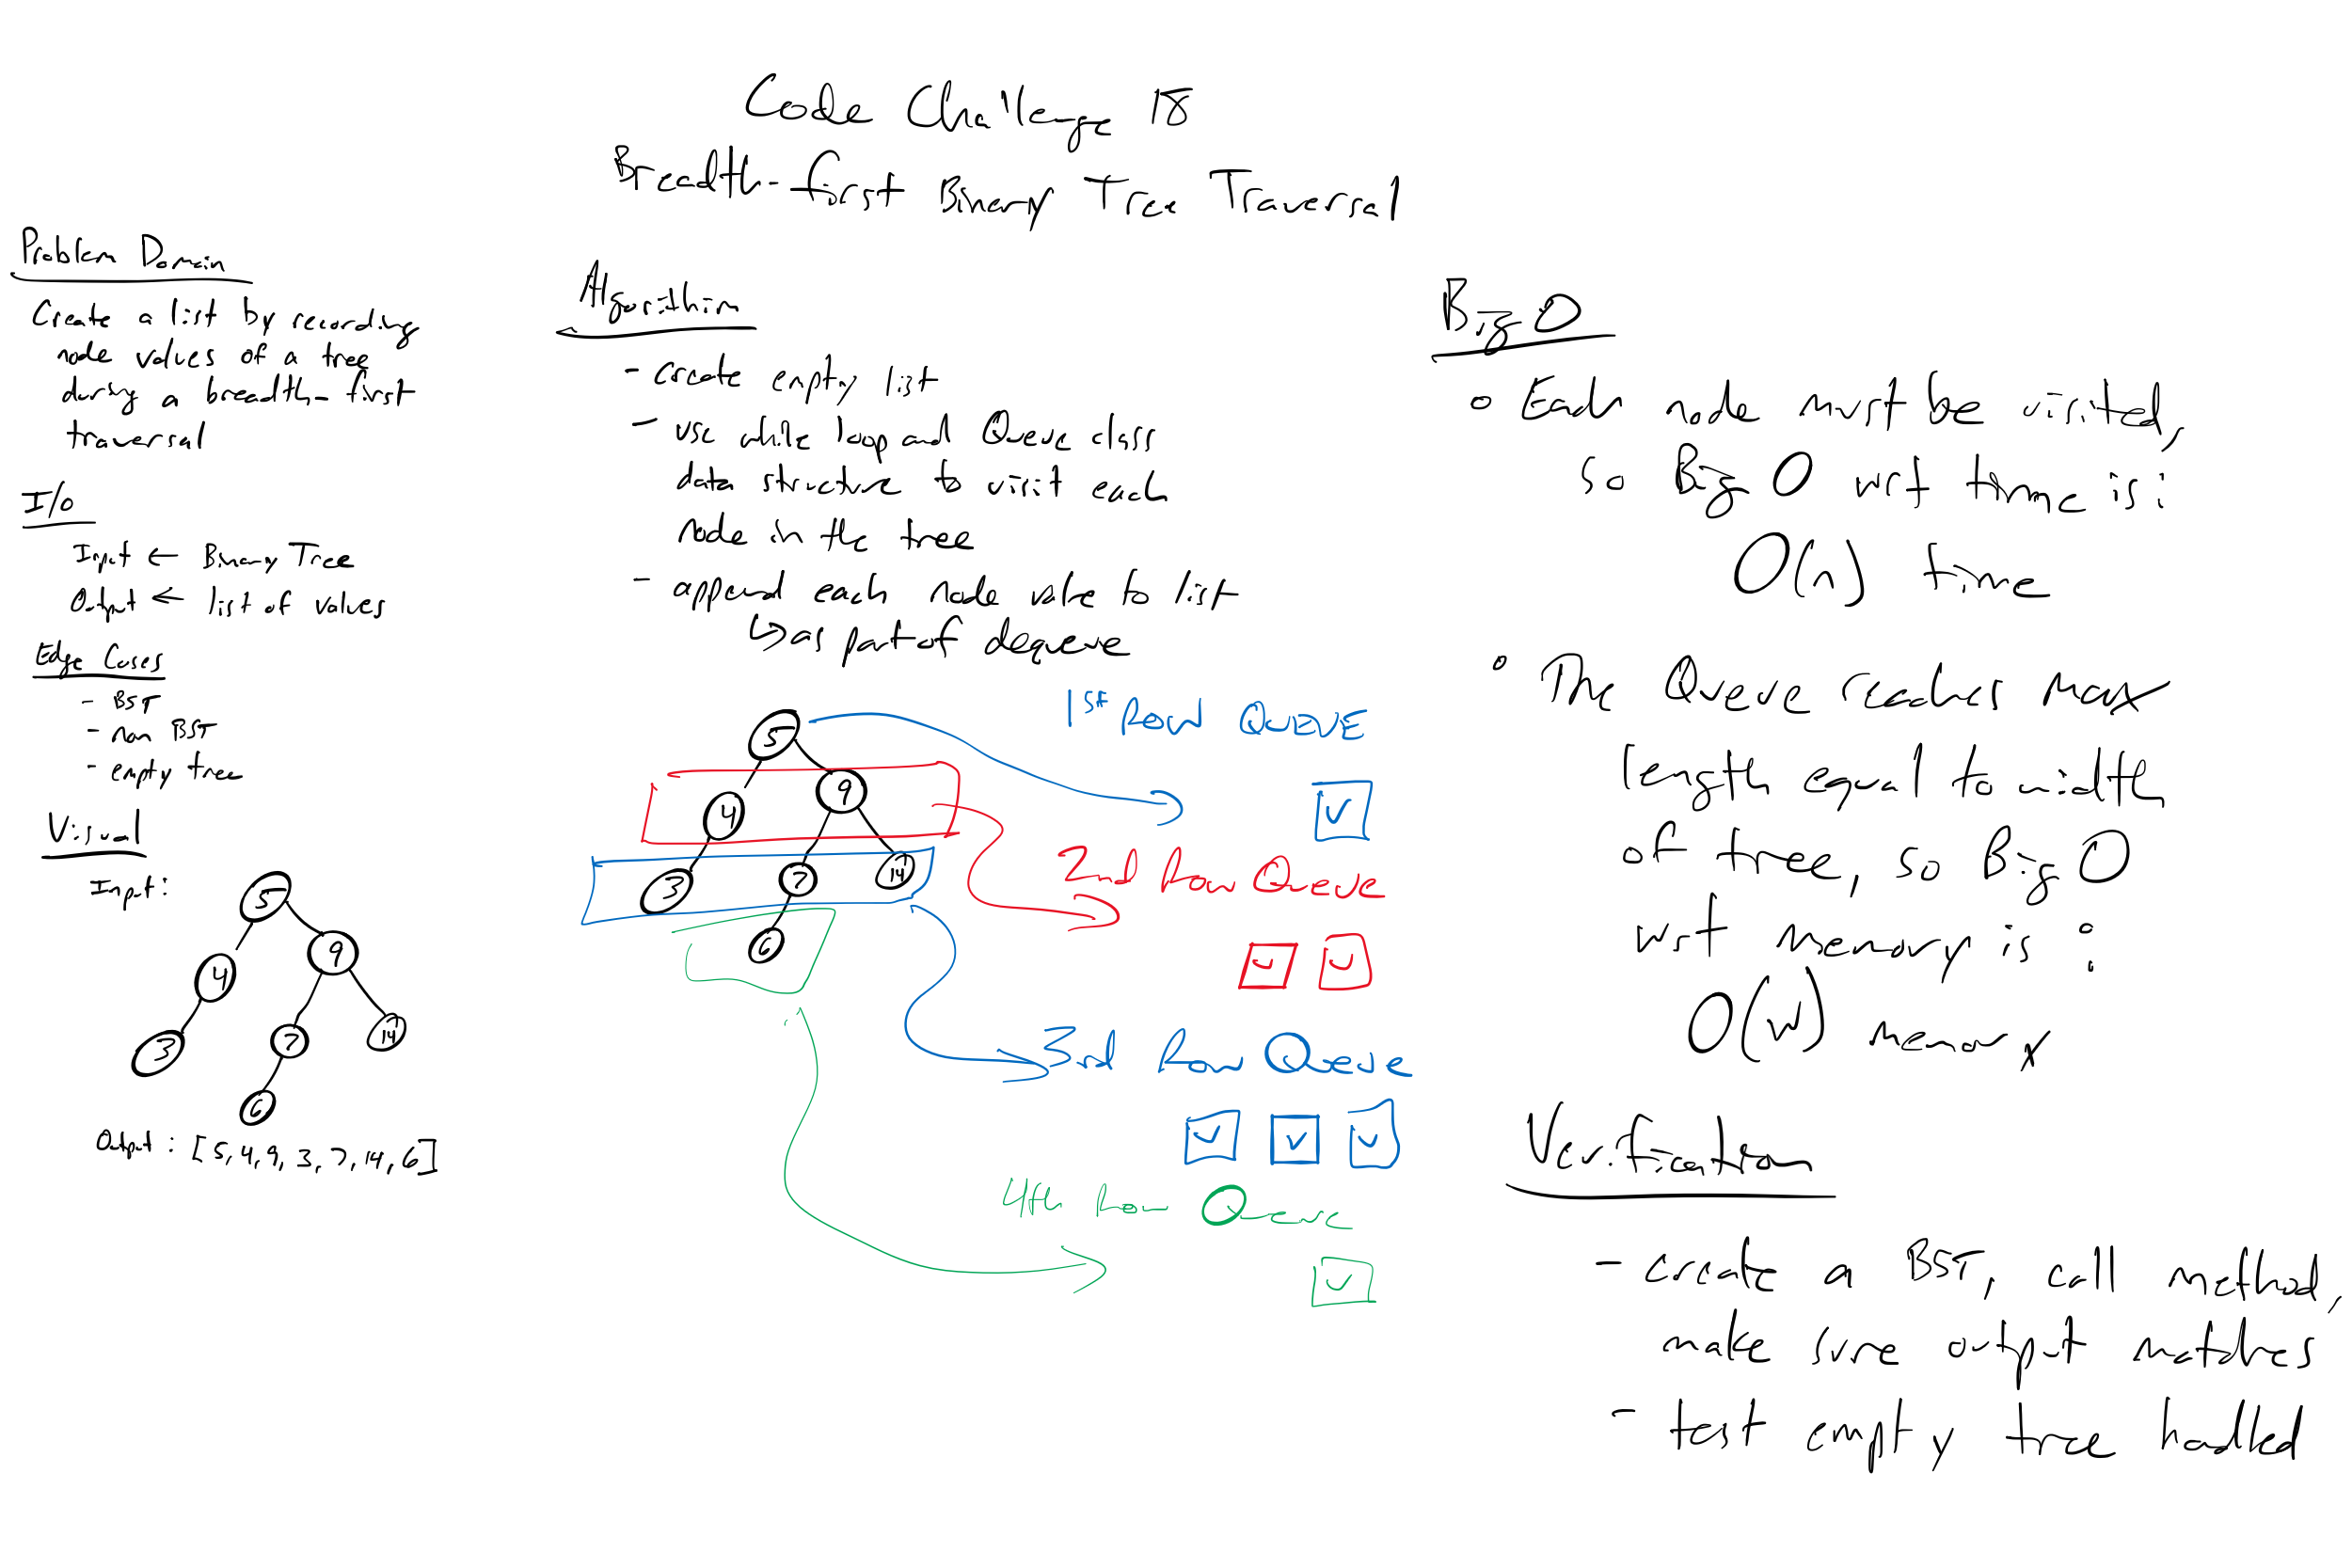 Code Challenge 18
Breadth-first Binary Tree Traversal
Problem Domain
Create a list by recording
node values of a tree
during a breadth-first
traversal
I/O
Input ← Binary Tree
Output ← list of values
Edge Cases
- BST
- non BST
- empty tree
Visual
Input:
5
4
9
3
7
14
6
Output: [5, 4, 9, 3, 7, 14, 6]
Algorithim
- create empty list
- use while loop and Queue class
data structure to visit each
node in the tree
- append each node value to list
↳ as part of dequeue
5
4
9
3
7
14
6
1st ROW QUEUE
2nd Row Queue
3rd Row Queue
4th Row Queue
Big O
° Each node must be visited,
so Big O wrt time is:
O(n) time
° The Queue reaches max
length equal to width
of tree, so Big O
wrt memory is:
O(w) memory
Verification
- create a BST, call method,
make sure output matches
- test empty tree handled